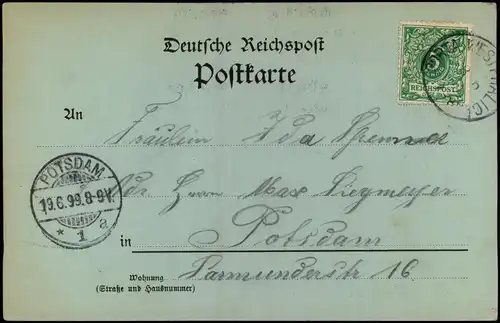 Deutsche Reichspost
Postkarte
REICHSPOST
PORTA (WESTFALICA)
An
Fräulein Ida
Adr Herrn Max Siegmeyer
in Potsdam
Wohnung
(Straße und Hausnummer)
Saarmunderstr 16
POTSDAM
19.6.99.8-9V.
* 1 a